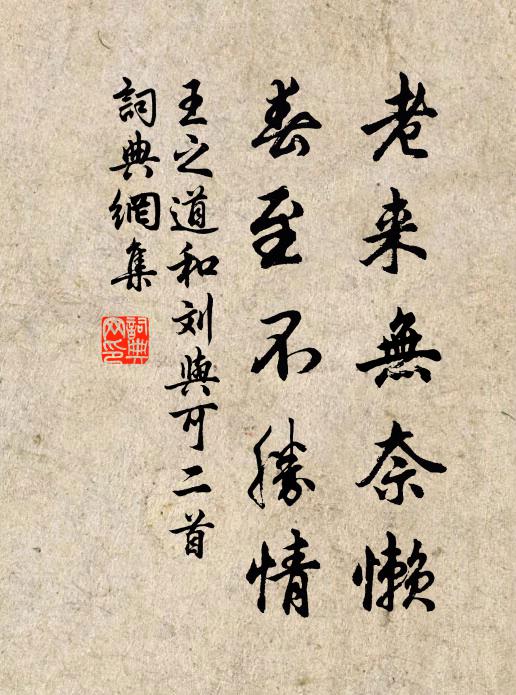 老来無奈懶
春至不勝情
王之道和刘與可二首
詞典網集
詞典網印